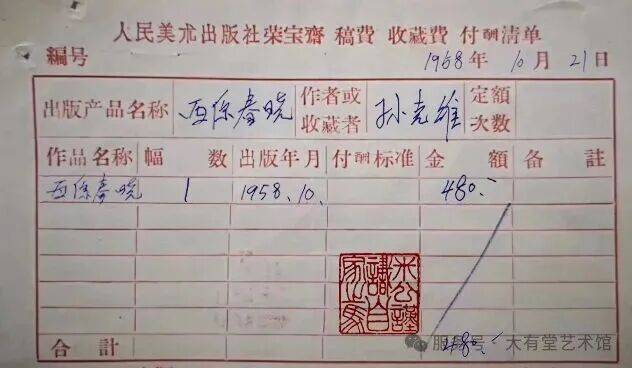 人民美朮出版社荣宝齋 稿費 收藏費 付酬清单
编号 1958年10月21日
出版产品名称 春晓 作者或收藏者 孙克维 定額次数
作品名称 幅数 出版年月 付酬标准 金額 备註
春晓 1 1958.10. 480.-
合計 480.-
大有堂艺术馆